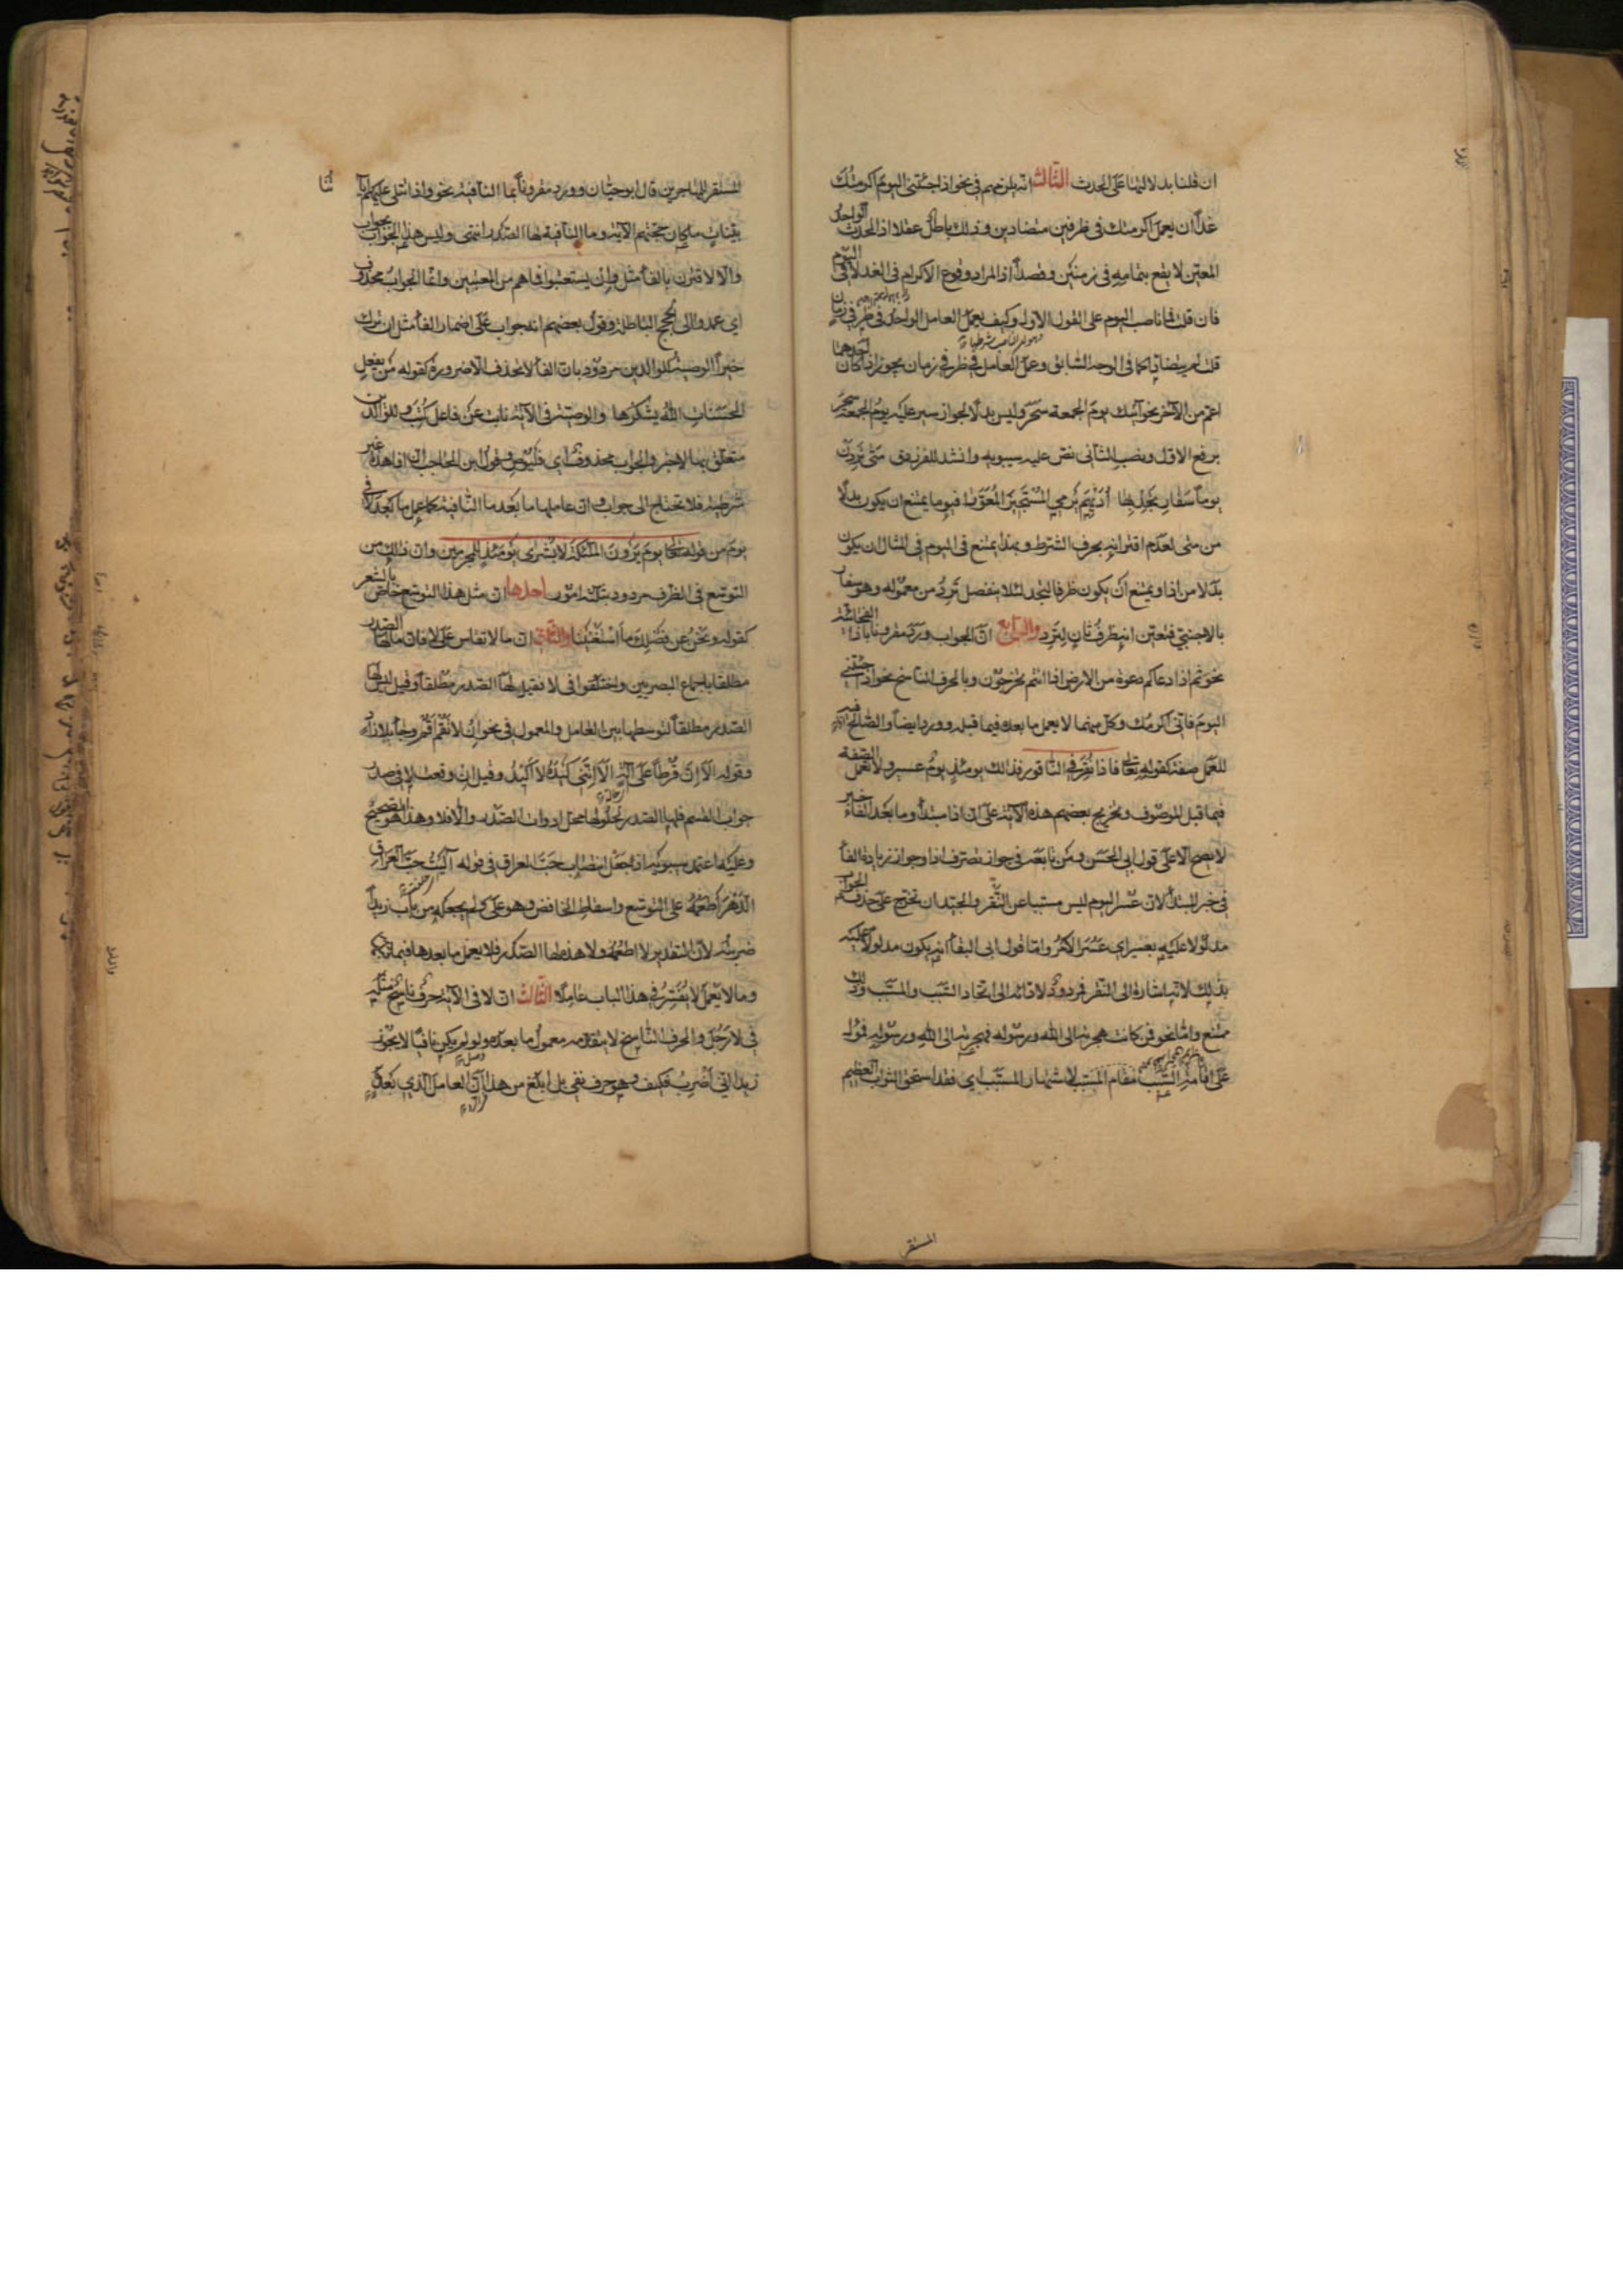 ان قلنا بدلالتها على الحدث الثالث انه يلزمهم في نحو اذا جئتني اليوم اكرمتك
غدا ان يعمل اكرمتك في ظرفين متضادين وذلك باطل عقلا اذ الحدث الواحد
المعين لا يقع بتمامه في زمنين وقصدا اذ المراد وقوع الاكرام في الغد لا في اليوم
فان قلت فما ناصب اليوم على القول الاول وكيف يعمل العامل الواحد في ظرفي زمان
قلت لم يتضادا كما في الوجه السابق وعمل العامل في ظرفي زمان يجوز اذا كان احدهما
اعم من الآخر نحو آتيك يوم الجمعة سحر وليس بدلا لجواز سير عليه يوم الجمعة سحر
برفع الاول ونصب الثاني نص عليه سيبويه وانشد للفرزدق متى تردن
يوما سفار تجد بها اديهم يرمي المستجيز المعورا فيوما يمتنع ان يكون بدلا
من متى لعدم اقترانه بحرف الشرط ولهذا يمتنع في اليوم في المثال ان يكون
بدلا من اذا ويمتنع ان يكون ظرفا لتجد لئلا ينفصل ترد من معموله وهو سفار
بالاجنبي فتعين انه ظرف ثان لترد والرابع ان الجواب ورد مقرونا باذا الفجائية
نحو ثم اذا دعاكم دعوة من الارض اذا انتم تخرجون وبالحرف الناسخ نحو اذا جئتني
اليوم فاني اكرمك وكل منهما لا يعمل ما بعده فيما قبله وورد ايضا والصالح فيه
للعمل صفة كقوله تعالى فاذا نقر في الناقور فذلك يومئذ يوم عسير ولا تعمل الصفة
فيما قبل الموصوف وتخريج بعضهم هذه الآية على ان اذا مبتدأ وما بعد الفاء خبر
لا يصح الا على قول ابي الحسن ومن تابعه في جواز تصرف اذا وجواز زيادة الفاء
في خبر المبتدأ لان عسر اليوم ليس مسببا عن النقر والجيد ان تخرج على حذف الجواب
مدلولا عليه بعسير اي عسر الامر واما قول ابي البقاء انه يكون مدلولا عليه
بذلك لانه اشارة الى النقر فمردود لادائه الى اتحاد السبب والمسبب وذلك
ممتنع واما نحو فمن كانت هجرته الى الله ورسوله فهجرته الى الله ورسوله فمؤول
على اقامة السبب مقام المسبب لاشتهار المسبب اي فقد استحق الثواب العظيم
المستقر
المستقر للمهاجرين قال ابو حيان وورد مقرونا بما النافية نحو واذا تتلى عليهم آياتنا
بينات ما كان حجتهم الآية وما النافية لها الصدر انتهى وليس هذا الجواب بجواب
والا لاقترن بالفاء مثل وان يستعتبوا فما هم من المعتبين وانما الجواب محذوف
اي عمدوا الى الحجج الباطلة وقول بعضهم انه جواب على اضمار الفاء مثل ان ترك
خيرا الوصية للوالدين مردود بان الفاء لا تحذف الا ضرورة كقوله من يفعل
الحسنات الله يشكرها والوصية في الآية نائب عن فاعل كتب وللوالدين
متعلق بها لا خبر والجواب محذوف اي فليوص وقول ابن الحاجب ان اذا هذه غير
شرطية فلا تحتاج الى جواب وان عاملها ما بعد ما النافية كما عمل ما بعد لا في
يوم من قوله تعالى يوم يرون الملئكة لا بشرى يومئذ للمجرمين وان ذلك من
التوسع في الظرف مردود بثلثة امور احدها ان مثل هذا التوسع خاص بالشعر
كقوله ونحن عن فضلك ما استغنينا والثاني ان ما لا تقاس على لا فان ما لها الصدر
مطلقا باجماع البصريين واختلفوا في لا فقيل لها الصدر مطلقا وقيل ليس لها
الصدر مطلقا لتوسطها بين العامل والمعمول في نحو ان لا تقم اقم وجاء بلا زاد
وقوله الا ان قرطا على آلة الا انني كيده لا اكيد وقيل ان وقعت لا في صدر
جواب القسم فلها الصدر لحلولها محل ادوات الصدر والا فلا وهذا هو الصحيح
وعليه اعتمد سيبويه اذ جعل انتصاب حب العراق في قوله آليت حب العراق
الدهر اطعمه على التوسع واسقاط الخافض وهو على ولم يجعله من باب زيدا
ضربته لان التقدير لا اطعمه ولا هذه لها الصدر فلا يعمل ما بعدها فيما قبلها
وما لا يعمل لا يفسر في هذا الباب عاملا الثالث ان لا في الآية حرف ناسخ مثله
في لا رجل والحرف الناسخ لا يتقدمه معمول ما بعده ولو لم يكن نافيا لا يجوز
زيدا اني اضرب فكيف وهو حرف نفي بل ابلغ من هذا ان العامل الذي بعده